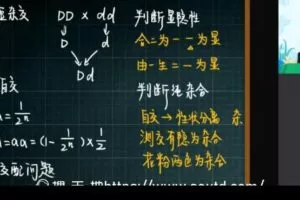 杂交 DD × dd
D d
Dd
自交
= 1/2ⁿ
=aa=(1-1/2ⁿ)×1/2
交配问题
判断显隐性
合二为一 一为显
由一生二 一为显
判断纯杂合
自交→性状分离 杂
测交有隐为杂合
花粉两色为杂合